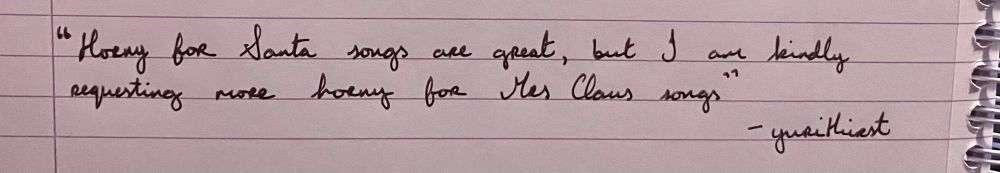 “Horny for Santa songs are great, but I am kindly
requesting more horny for Mrs Claus songs”
- yurithirst